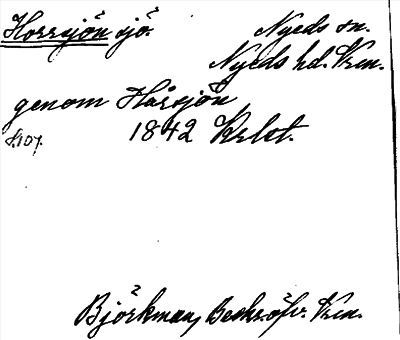 Horrsjön sjö. Nyeds sn.
Nyeds hd. Vrm.
genom Hårsjön
S.107. 1842 Krlst.
Björkman, Beskr. öfv. Vrm.